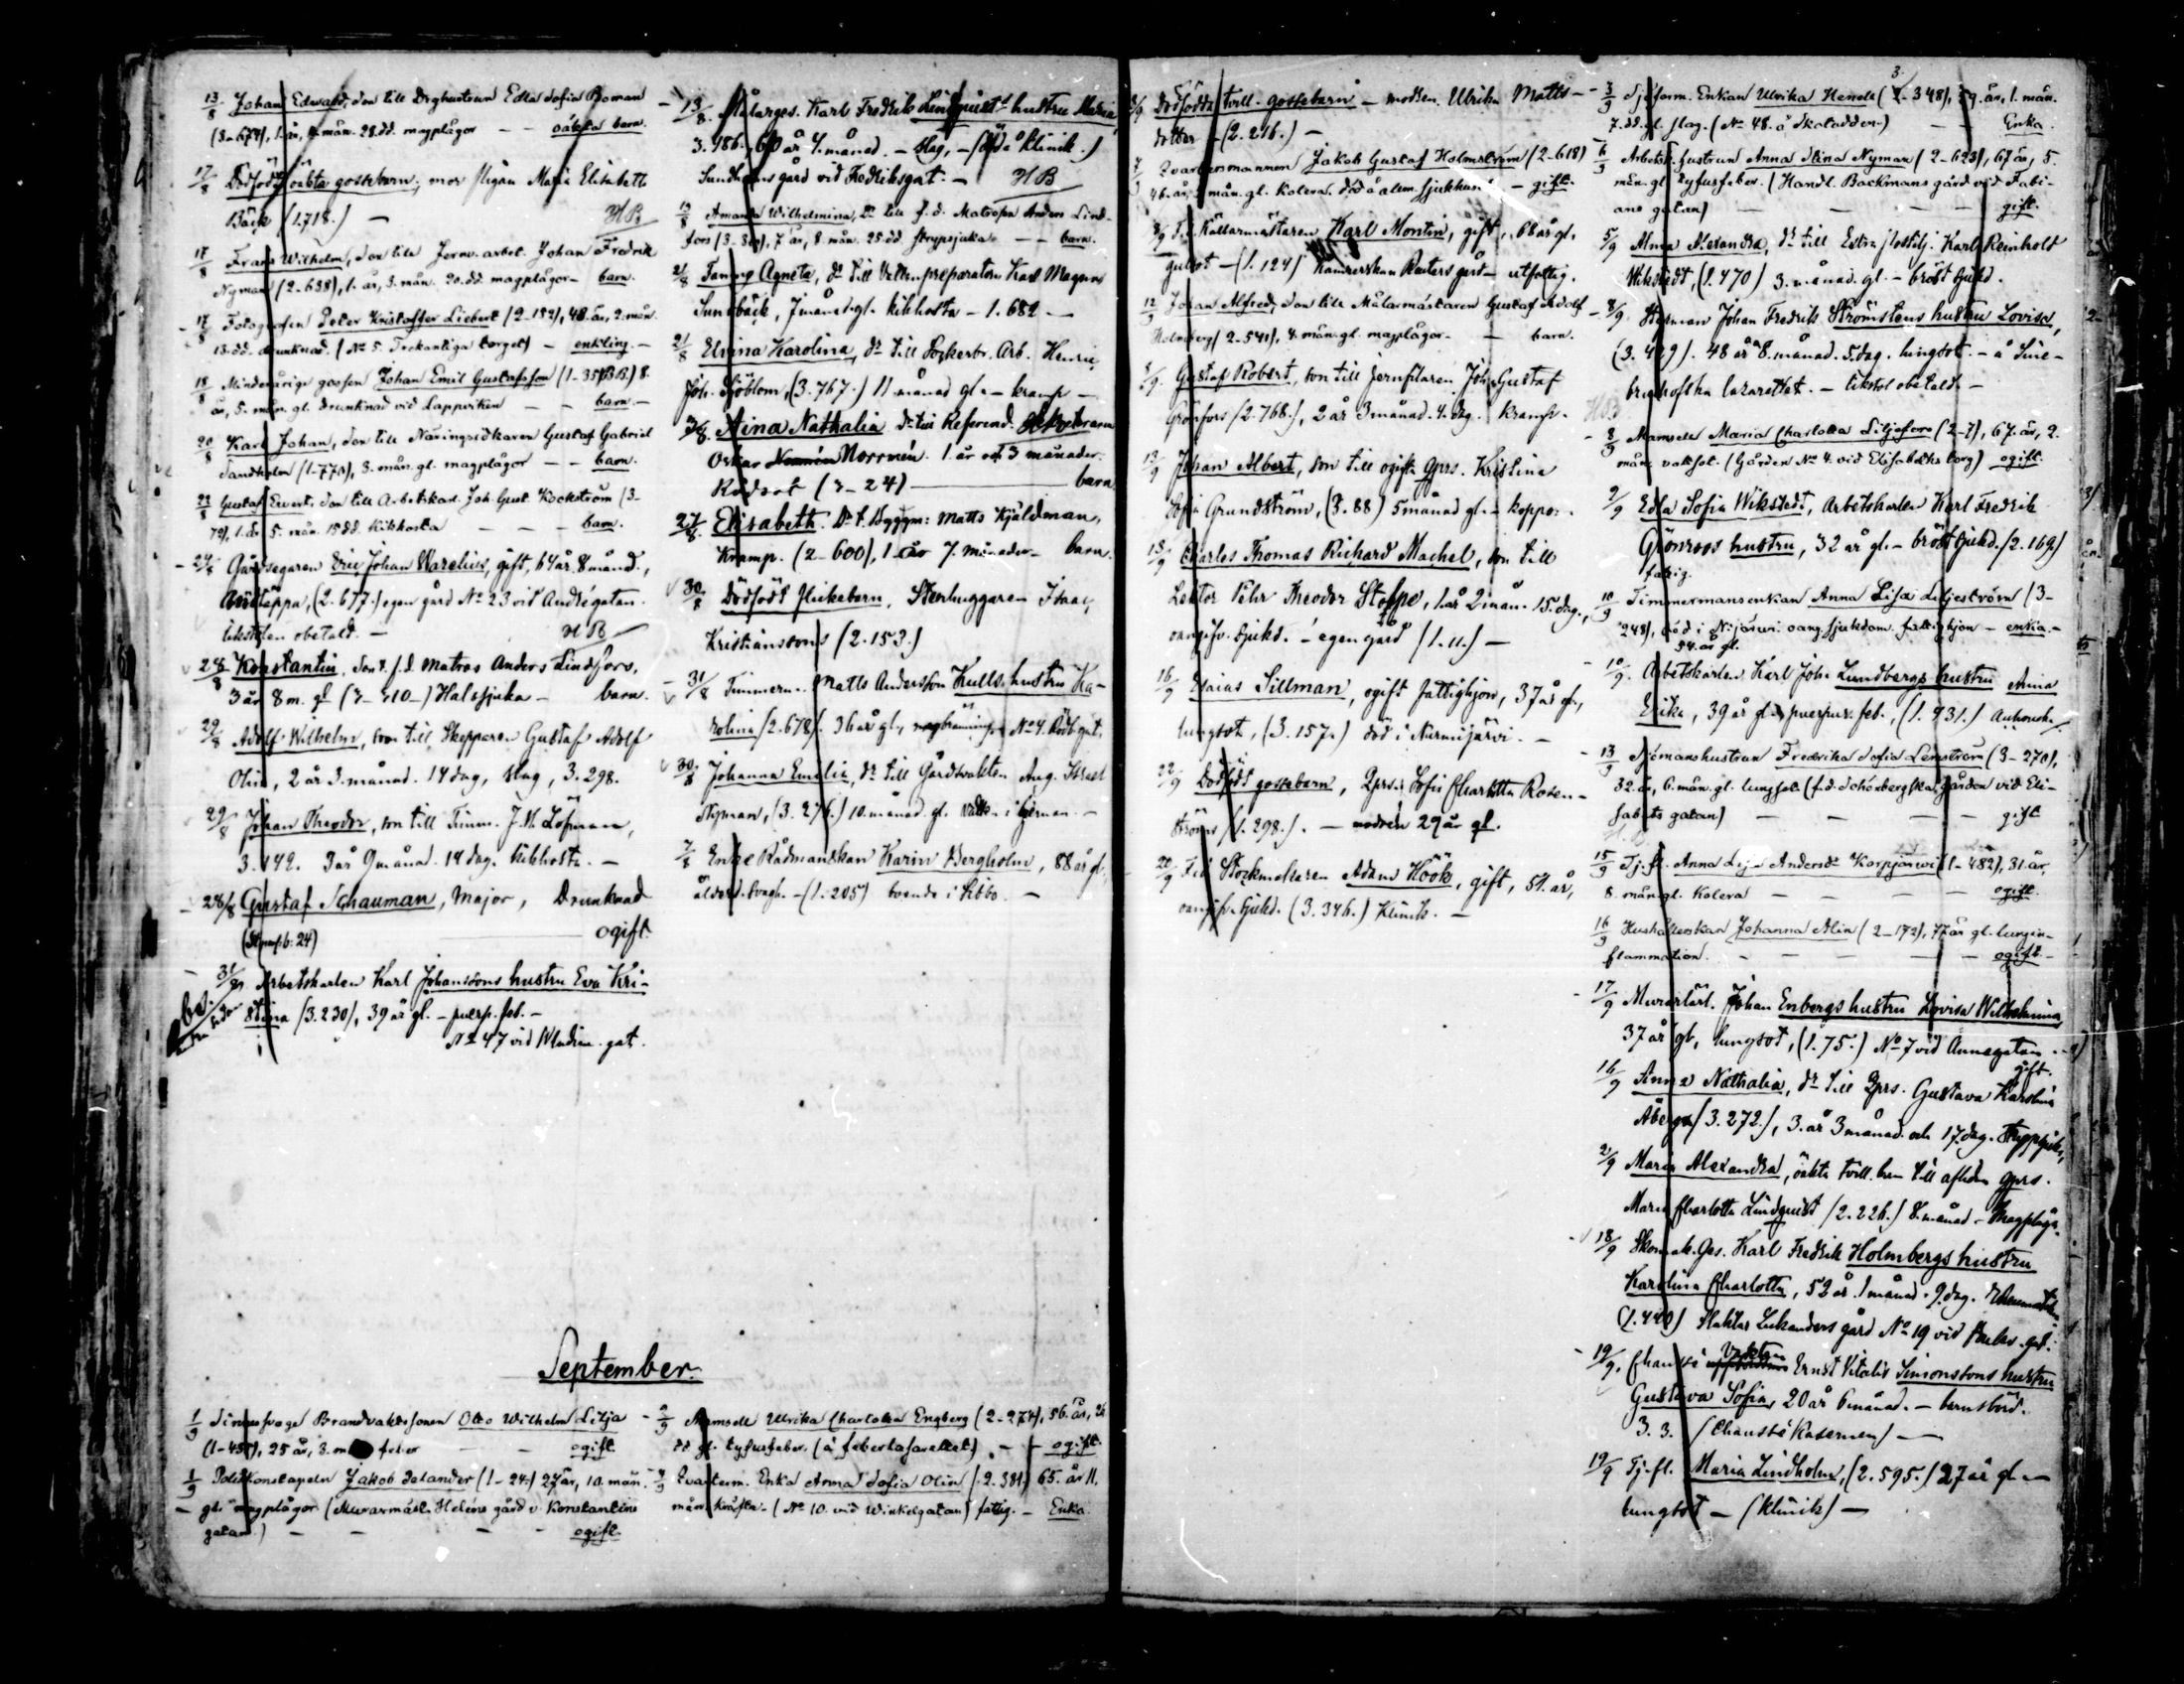 13/8 Johan Edward, son till Drghustrun Edla Sofia Boman
(3-674), 1. år, 4. mån. 28. dd. magplågor — — oäkta barn.
17/8 Dödfödt oäkta gossebarn, mor pigan Maria Elisabeth
Bäck (1.718.) — NB
17/8 Frans Wilhelm, son till Jernv. arbet. Johan Fredrik
Nyman (2-638), 1. år, 3. mån. 20. dd. magplågor — barn.
17/8 Fotografen Peter Kristoffer Liebert (2-182), 48. år, 2. mån.
13. dd. drunknad. (No 5. Trekantiga torget) — enkling. —
18/8 Minderårige gossen Johan Emil Gustafsson (1-35) 8.
år, 5. mån. gl. drunknad vid Lappviken — — barn. —
20/8 Karl Johan, son till Näringsidkaren Gustaf Gabriel
Sandholm (1-770), 3. mån. gl. magplågor — — barn.
23/8 Gustaf Evert, son till Arbetskarl. Joh. Gust. Kockström (3-
79), 1. år 5. mån. 15 dd. Kikhosta — — — barn.
Gårdsegaren Eric Johan Warelius, gift, 64 år. 8 månd.,
(2.677.) egen gård No 23 vid Andrégatan.
likstolen obetald. — NB
28/8 Konstantin, son t. f.d. matros Anders Lindfors,
3 år 8 m. gl. (3-310-) Halssjuka — barn.
29/8 Adolf Wilhelm, son till Skepparen Gustaf Adolf
Olin, 2 år 3. månad. 14 dag, slag, 3.298.
29/8 Johan Theodor, son till Timm. J. W. Löfman,
3.142. 3 år 9 månad. 14 dag. kikhosta. —
28/8 Gustaf Schauman, Major, Drunknad
ogift.
31/8 Arbetskarlen Karl Johanssons hustru Eva Kri-
stina (3.230), 39 år gl. — puerp. feb. —
No 47 vid Wladim. gat.
13/8. Målarges. Karl Fredrik Lindqvists hustru Maria
3.486., 60 år 4. månad. — slag, — (död å klinik.)
Sundholms gård vid Fredriksgat. — NB
19/8 Amanda Wilhelmina, Dr till f. d. Matrosen Anders Lind-
fors (3-310), 7 år, 8 mån. 25. dd. strypsjuka — — barn.
21/8 Fanny Agneta, dr till Vattenpreparatorn Karl Magnus
Sundbäck, 7 månad. gl. kikhosta — 1.682 —
21/8 Elmina Karolina, dr till Sockerbr. Arb. Henric
Joh. Sjöblom, (3.767.) 11 månad gl. — kramp —
Aina Nathalia Dr till Referend. Sekreteraren
Oskar Norrmén. 1 år och 3 månader.
Rödsot (3-24) ——— barn
27/8. Elisabeth. Dr t. Byggm: Matts Kjäldman,
Kramp. (2-600), 1 år 7. månader — barn.
30/8 Dödfödt flickebarn, Stenhuggaren Isaac
Kristianssons (2.153.)
31/8 Timmerm. Matts Andersson Kulls hustru Ka-
rolina (2.678). 36 år gl., No 4. Rödb. gat.
30/8 Johanna Emilia, dr till Gårdsvakten Aug.
Nyman, (3.276.) 10. månad gl. vatten i hjernan. —
7/8 Enke Rådmanskan Karin Bergholm, 88 år gl.,
ålderd. svagh. — (1.205) boende i Sibbo. —
September.
1/9 Brandvaktssonen Otto Wilhelm Lilja
(1-457), 25 år, 3. m feber — — ogift
1/9 Poliskonstapeln Jakob Selander (1-24) 27 år, 10. mån.
gl. magplågor (Murarmäst. Heléns gård v. Konstantins
gatan) — — — ogift.
2/9 Mamsell Ulrika Charlotta Engberg (2-274), 56. år, 26.
dd. gl. tyfusfeber. (å feberlasarettet) — — ogift.
4/9 Qvarterm. Enka Anna Sofia Olin (2.381) 65. år 11.
mån. kräfta. — (No 10. vid Winkelgatan) fattig. — Enka.
Dödfödda tvill. gossebarn — modren. Ulrika Matts-
dotter — (2.216.) —
7/9 Qvartersmannen Jakob Gustaf Holmström (2-618)
46. år, mån. gl. Kolera. död å allm. sjukhuset — gift.
8/9 F.d. Källarmästaren Karl Montin, gift, 68 år gl.,
gulsot — (1.124) Kamrerskan Reuters gård — utfattig.
12/9 Johan Alfred, son till Målarmästaren Gustaf Adolf
Holmberg (2.541), 4. mån. gl. magplågor. — barn.
8/9. Gustaf Robert, son till jernfilaren Joh. Gustaf
Grönfors (2.768.), 2 år 3 månad. 4. dag. kramp.
13/9 Johan Albert, son till ogift qprs. Kristina
Sofia Grundström, (3.88) 5 månad gl. — koppor.
13/9 Charles Thomas Richard Machel, son till
Lektor Pehr Theodor Stolpe, 1 år 2 mån. 15. dag.,
oangifv. sjukd. — egen gård (1.11.) —
16/9 Esaias Sillman, ogift fattighjon, 37 år gl.,
lungsot, (3.157.) död i Nurmijärvi. —
22/9 Dödfödt gossebarn, Qprs. Sofia Charlotta Rosen-
ströms (1.298.). — modren 29 år gl.
20/9 F.d. Stockmakaren Adam Höök, gift, 51. år,
oangifv. sjukd. (3.346.) Klinik. —
3/9 Sjöform. Enkan Ulrika Henell (3-348), 59. år, 1. mån.
7. dd. gl. slag. (No 48. å Skatudden.) — — Enka.
6/9 Arbetsk. hustrun Anna Stina Nyman (2-623), 67 år, 5.
mån. gl. tyfusfeber. (Handl. Backmans gård vid Fabi-
ans gatan) — — — gift.
5/9 Alma Alexandra, dr till Extra postilj. Karl Reinholt
Wikstedt, (1.470) 3. månad. gl. — bröst sjukd.
8/9. Styrman Johan Fredrik Strömstens hustru Lovisa,
(3.429). 48 år 8. månad. 5. dag. lungsot. — å Sine-
brychoffska lazarettet. — likstol obetald. —
8/9 Mamsell Maria Charlotta Liljefors (2-7), 67. år, 2.
mån. vattsot. (Gården No 4. vid Elisabeths torg) ogift.
9/9 Edla Sofia Wikstedt, Arbetskarlen Karl Fredrik
Grönroos hustru, 32 år gl. — bröst sjukd. (2.169.)
fattig.
10/9 Timmermansenkan Anna Lisa Liljeström (3-
248), död i N:järvi. oang. sjukdom. fattighjon — enka. —
54. år gl.
10/9. Arbetskarlen Karl Joh. Lundbergs hustru Anna
Erika, 39 år gl. puerper. feb., (1.931.)
13/9 Sjömanshustrun Fredrika Sofia Lemström (3-270),
32. år, 6. mån. gl. lungsot. (f.d. Schönbergska gården vid Eli-
sabets gatan) — — — gift
15/9 Tj. fl. Anna Lisa Andersdr Korpjärwi (1-482), 31. år,
8. mån. gl. Kolera — — — ogift.
16/9 Hushållerskan Johanna Alin (2-172), 47 år gl. lungin-
flammation. — — — — ogift. —
17/9 Murarlärl. Johan Enbergs hustru Lovisa Wilhelmina,
37 år gl., lungsot, (1.75.) No 7 vid Annegatan.
gift.
16/9 Anna Nathalia, dr till Qprs. Gustava Karolina
Åberg (3.272.), 3. år 3 månad. och 17. dag. strypsjuka,
21/9 Maria Alexandra, oäkta tvill. barn till aflidna qprs.
Maria Charlotta Lindquist (2.226.) 8. månad. — magplågor.
18/9 Skomak. Ges. Karl Fredrik Holmbergs hustru
Karolina Charlotta, 52 år. 1 månad. 9. dag.
(1.440) Slaktar Lukanders gård No 19 vid
19/9. Chaussé Ernst Vitalis Simonssons hustru
Gustava Sofia, 20 år 6 månad. — barnsbörd.
3.3. (Chaussé Kasernen) —
19/9 Tj. fl. Maria Lindholm, (2.595.) 27 år gl. —
lungsot — (klinik) —